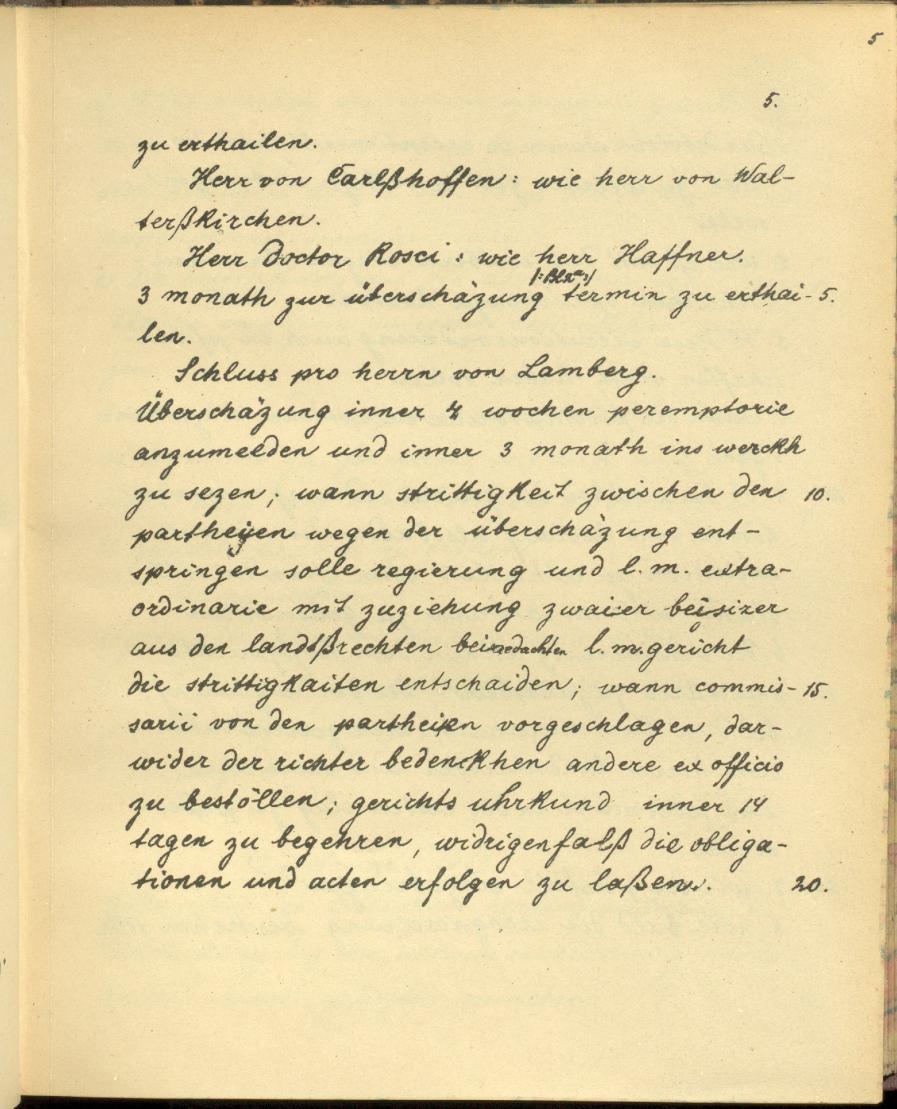 5
5.
zu erthailen.
Herr von Carlßhoffen: wie herr von Wal-
terßkirchen.
Herr Doctor Rosci: wie herr Haffner.
3 monath zur überschäzung termin zu erthai- 5.
len.
Schluss pro herrn von Lamberg.
Überschäzung inner 4 wochen peremptorie
anzumelden und inner 3 monath ins werckh
zu sezen; wann strittigkeit zwischen den 10.
partheyen wegen der überschäzung ent-
springen solle regierung und l. m. extra-
ordinarie mit zuziehung zwaier beisizer
aus den landtßrechten bei gedachten l. m. gericht
die strittigkaiten entschaiden; wann commis- 15.
sarii von den partheien vorgeschlagen, dar-
wider der richter bedenckhen andere ex officio
zu bestöllen; gerichts uhrkund inner 14
tagen zu begehren, widrigenfalß die obliga-
tionen und acten erfolgen zu laßen. 20.